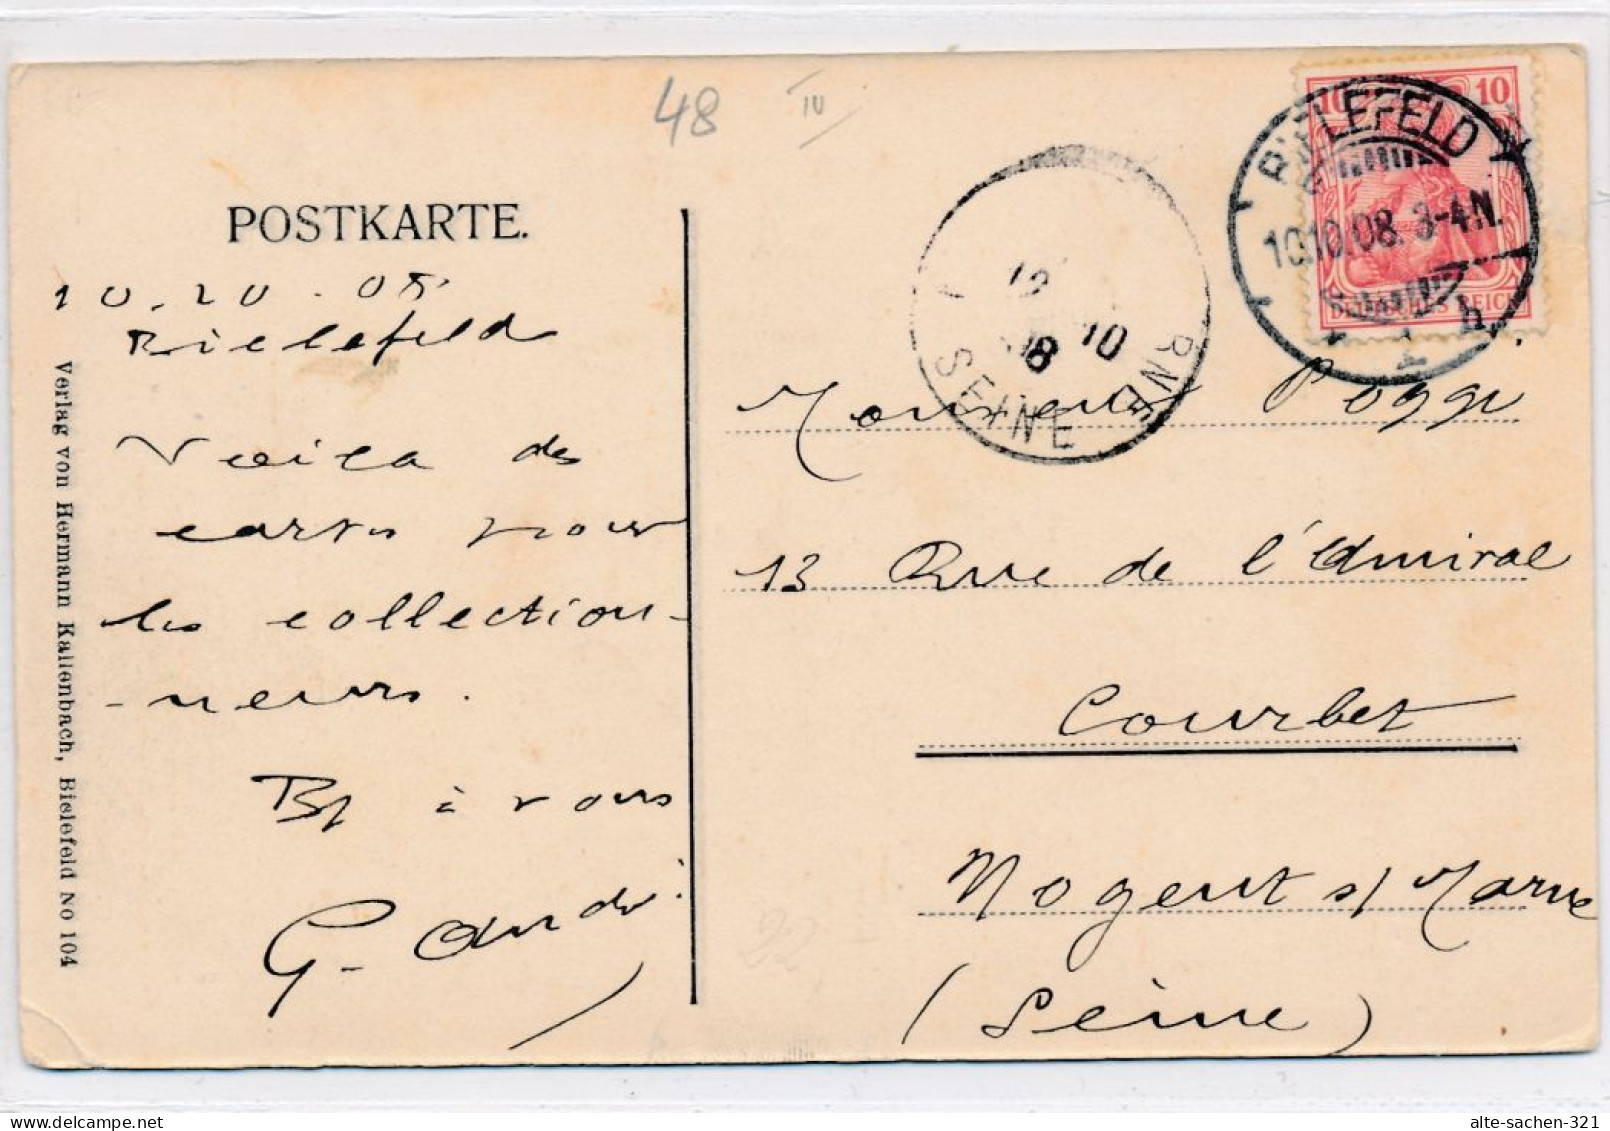 48 IV
POSTKARTE.
10.10.08
Bielefeld
Voila des
cartes pour
les collection-
-neurs.
à vous
G.
Verlag von Hermann Kallenbach, Bielefeld No 104
10 10
DEUTSCHES REICH
BIELEFELD
10.10.08. 3-4N.
* 1 h.
12
10
08
RNE
SEINE
Monsieur Poggi
13 Rue de l'Amiral
Courbet
Nogent s/ Marne
(Seine)
alte-sachen-321